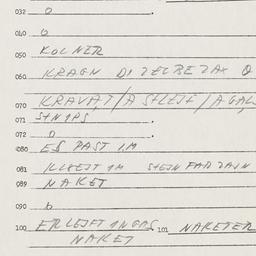 032 O .
040 O
050 KOLNER
060 KRAGN DI ZELBE ZAX O
070 KRAVAT / A SHLEIF / A GAL
071 SHNIPS .
072 O .
080 ES PAST IM
081 KLEIT IM SHEIN FAR ZAIN
089 NAKET
090 b
100 ER LEIFT IN GAS 101 NAKETER
NAKET